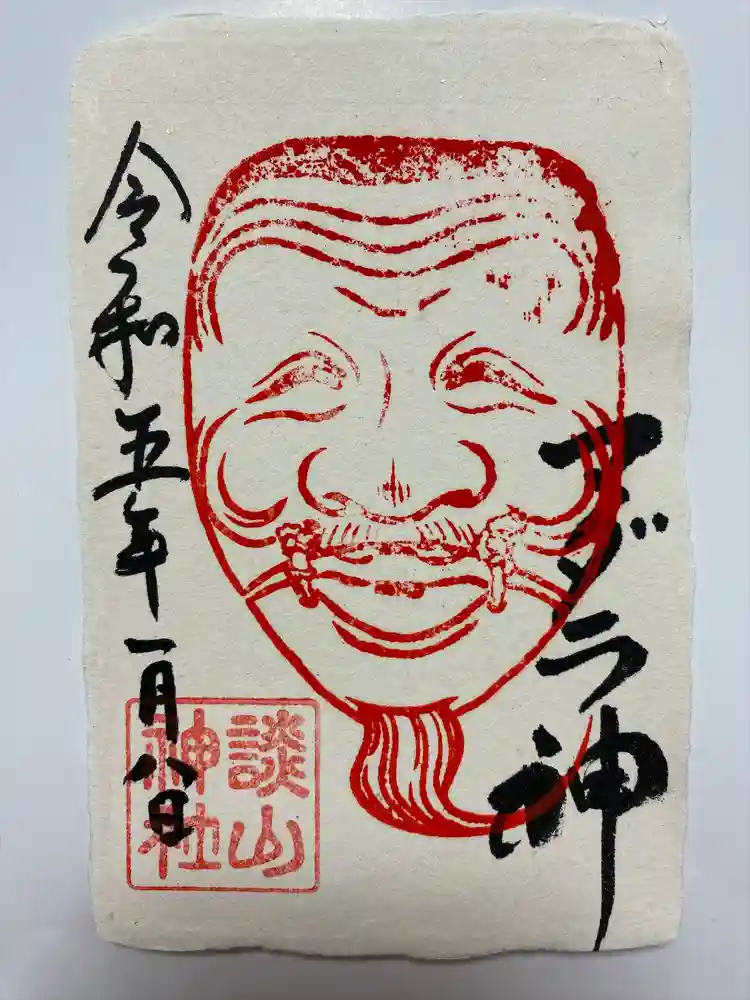 マダラ神
令和五年一月八日
談山
神社